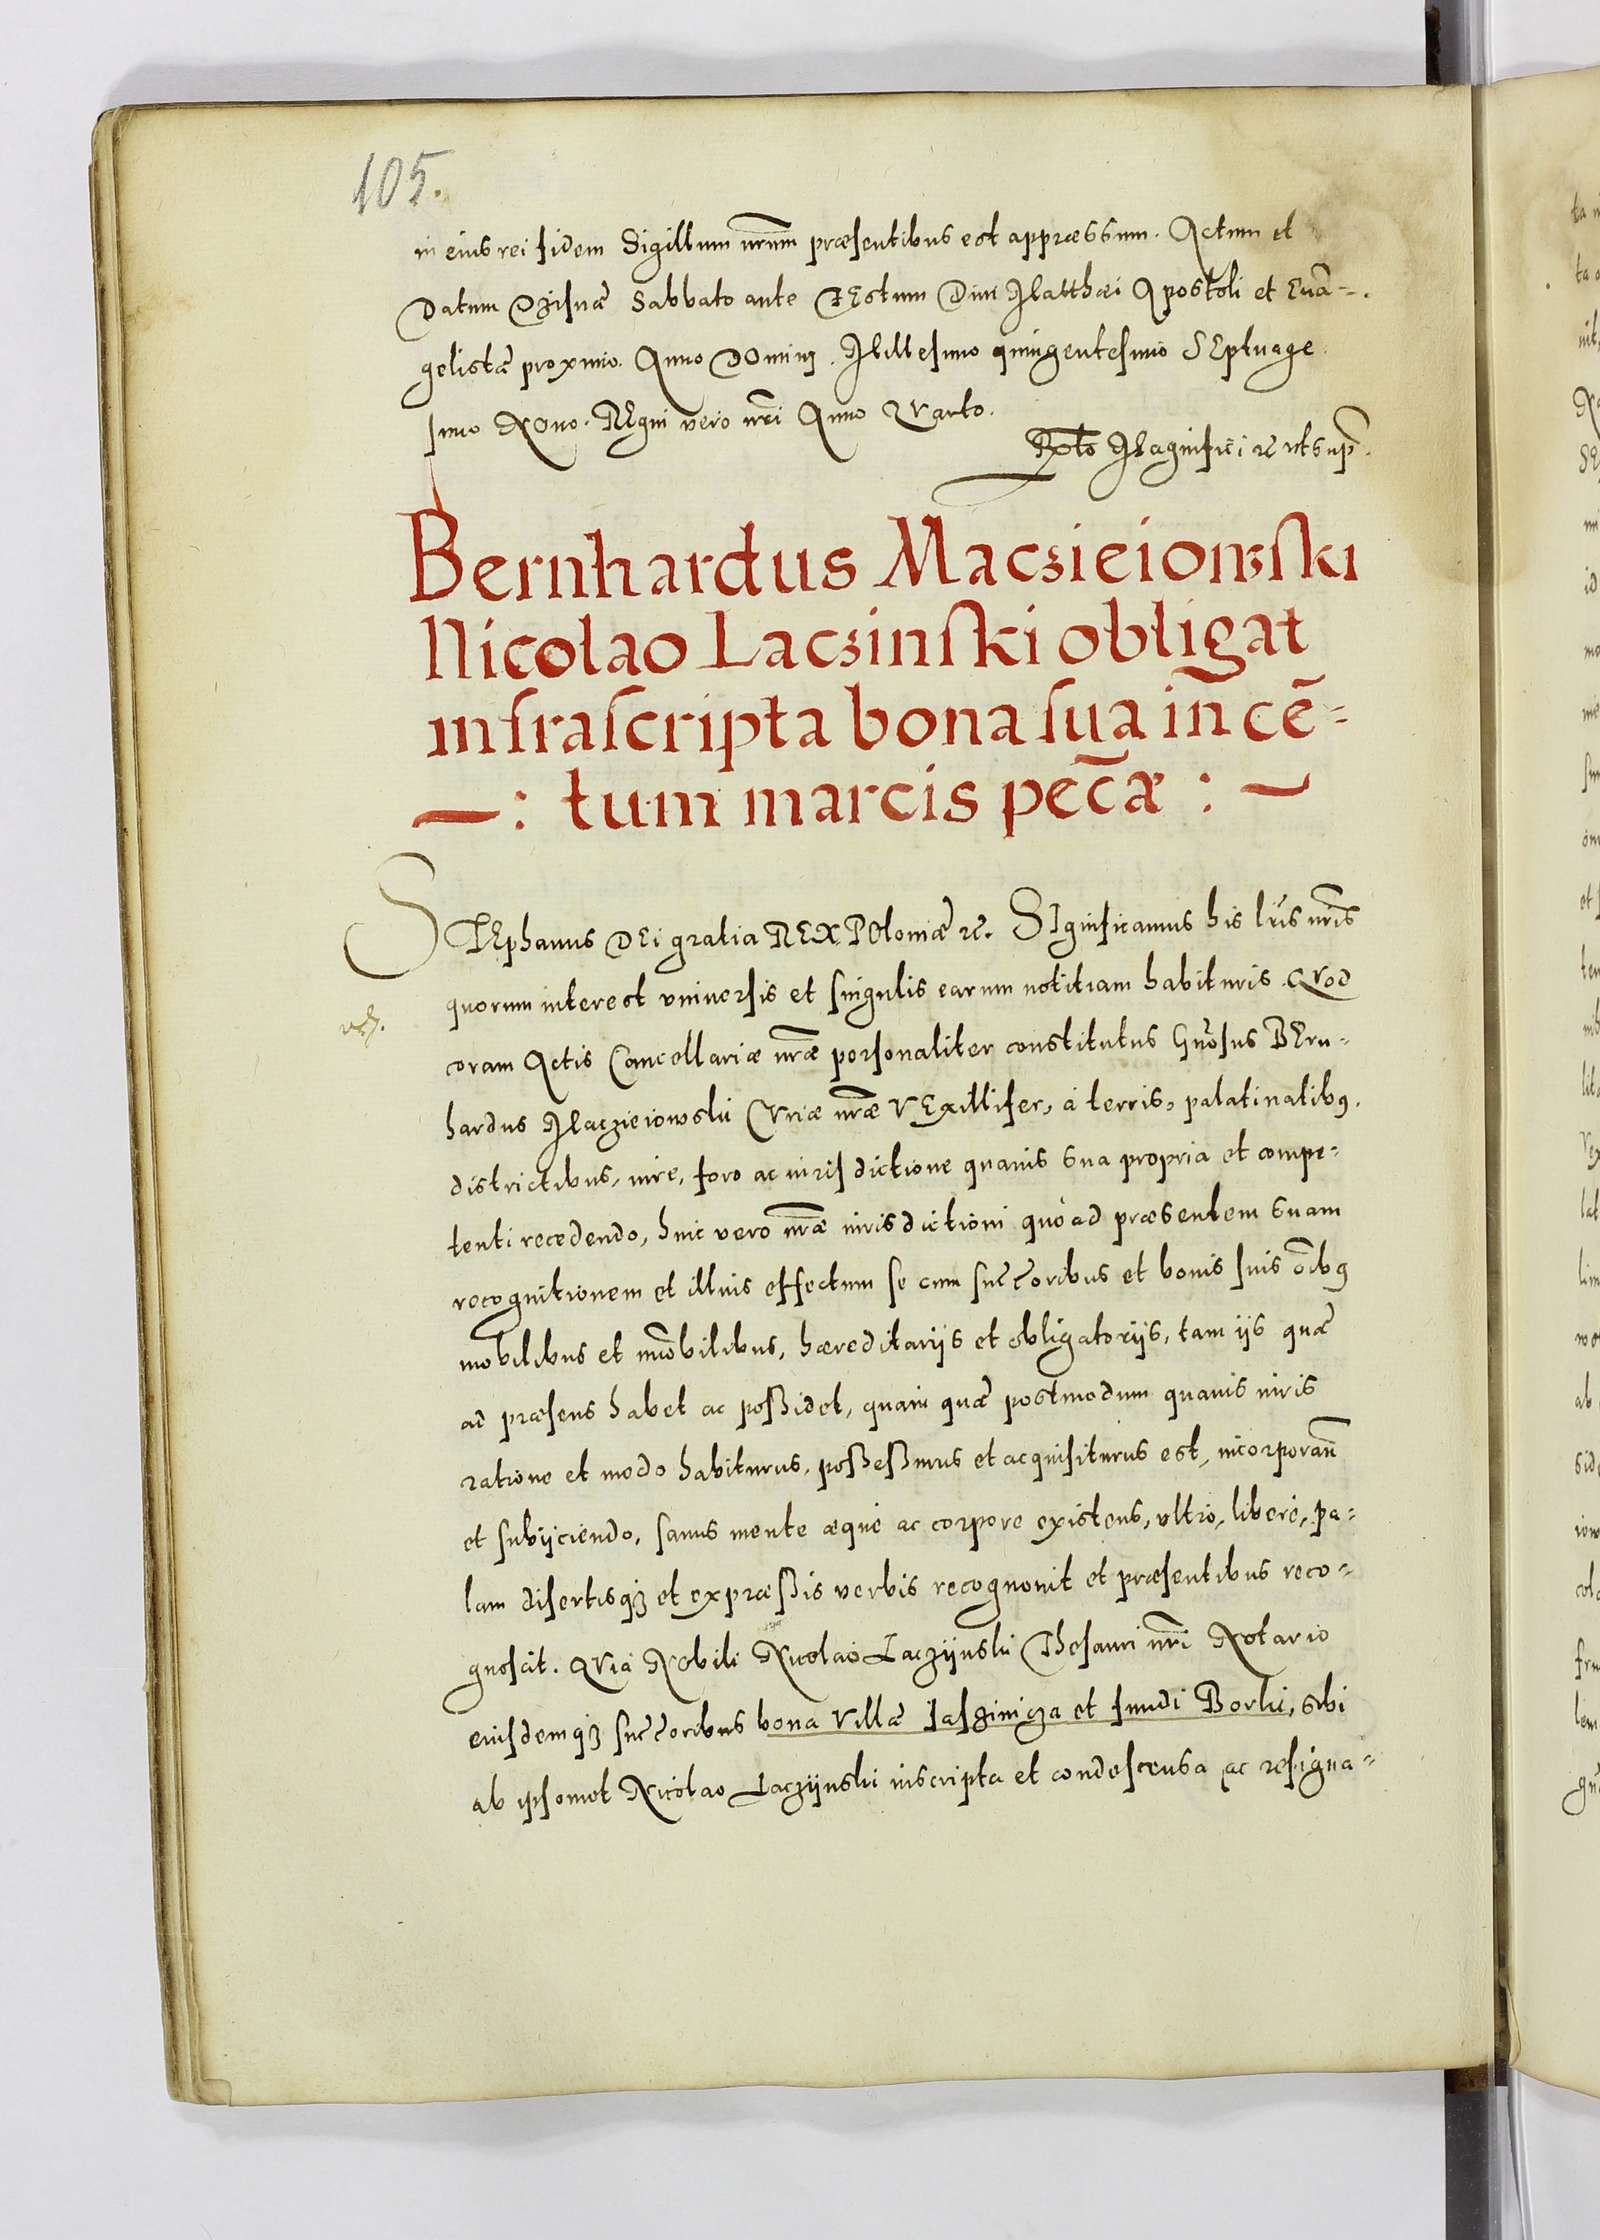 105.
in eius rei fidem Sigillum nr̃um præsentibus est appræssum. Actum et
Datum Dzisnæ Sabbato ante FEstum Diui Matthæi Apostoli et Euã-
gelistæ proximo. Anno DOmini. Millesimo quingentesimo SEptuage
simo NOno. REgni vero nr̃i Anno Quarto.
Rel̃to Magnifici ec̃ vt sup̃.
Bernhardus Maczieiowski
Nicolao Laczinski obligat
infrascripta bona sua in cẽ-
—: tum marcis pec̃æ :—
STEphanus DEi gratia REX POloniæ ec̃. SIgnificamus his lr̃is nr̃is
quorum interest vniuersis et singulis earum notitiam habituris. QVod
coram Actis Cancellariæ nr̃æ personaliter constitutus Gñosus BErn-
hardus Maczieiowski CVriæ nr̃æ VExillifer, à terris, palatinatibus,
districtibus, iure, foro ac iurisdictione quauis sua propria et compe-
tenti recedendo, huic vero nr̃æ iurisdictioni quò ad præsentem suam
recognitionem et illius effectum se cum suc̃c̃oribus et bonis suis oĩbus
mobilibus et im̃obilibus, hæreditarijs et obligatorijs, tam ijs quæ
ad præsens habet ac possidet, quam quæ postmodum quauis iuris
ratione et modo habiturus, possessurus et acquisiturus est, incorporañ
et subijciendo, sanus mente æquè ac corpore existens, vltrò, liberè, pa-
lam disertisqȝ et expræssis verbis recognouit et præsentibus reco-
gnoscit. QVia NObili Nicolao Laczijnski THesauri nr̃i NOtario
eiusdemqȝ suc̃c̃oribus bona Villæ Jaszinicza et fundi Borki, sibi
ab ipsomet Nicolao Laczijnski inscripta et condescensa ac resigna-